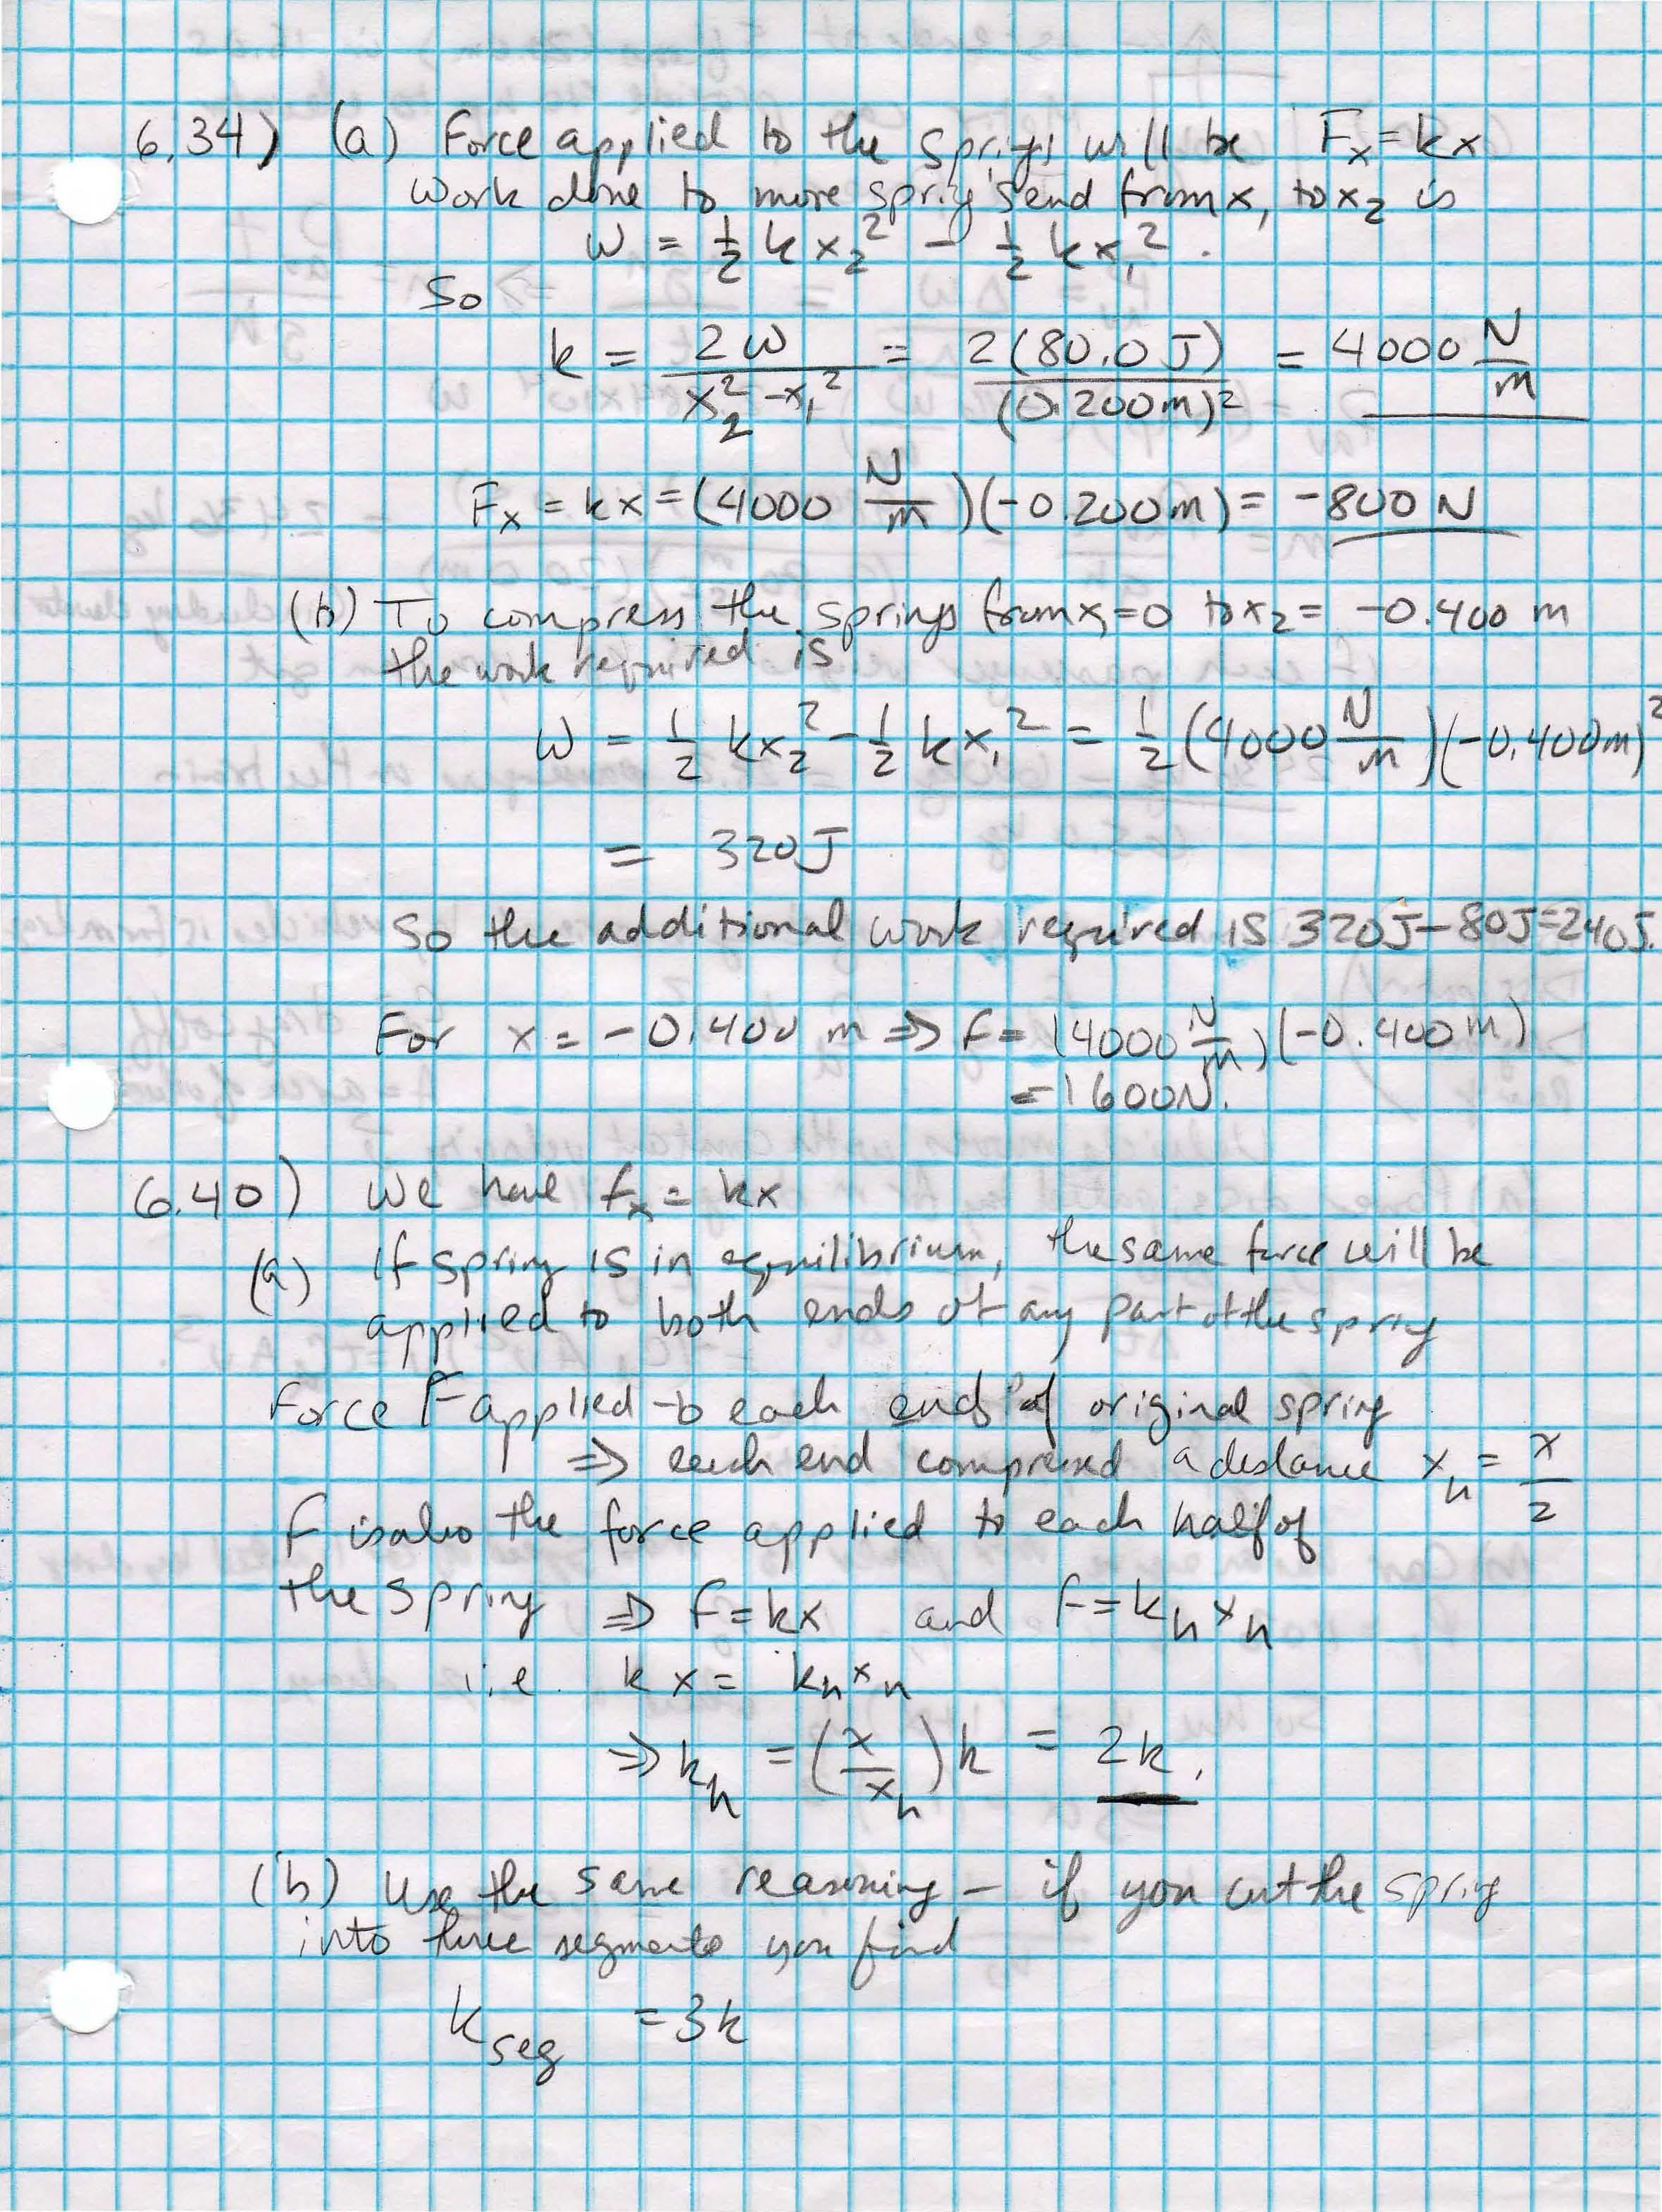 6.34) (a) Force applied to the springs will be Fₓ = kx
work done to move spring's end from x₁ to x₂ is
W = ½ k x₂² − ½ k x₁² .
So
k = 2W / (x₂² − x₁²) = 2(80.0 J) / (0.200 m)² = 4000 N/m
Fₓ = kx = (4000 N/m)(−0.200 m) = −800 N
(b) To compress the springs from x₁ = 0 to x₂ = −0.400 m
the work required is
W = ½ kx₂² − ½ kx₁² = ½ (4000 N/m)(−0.400m)²
= 320J
So the additional work required is 320J − 80J = 240J.
For x = −0.400 m ⇒ F = (4000 N/m)(−0.400 m)
= 1600N.
6.40) We have fₓ = kx
(a) If spring is in equilibrium, the same force will be
applied to both ends of any part of the spring
Force F applied to each end of original spring
⇒ each end compressed a distance xₕ = x/2
F is also the force applied to each half of
the spring ⇒ F = kx and F = kₕxₕ
i.e. kx = kₕxₕ
⇒ kₕ = (x/xₕ)k = 2k.
(b) Use the same reasoning – if you cut the spring
into three segments you find
k_seg = 3k